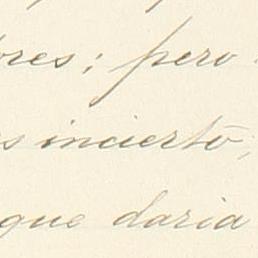 ores; pero
s incierto;
que daria